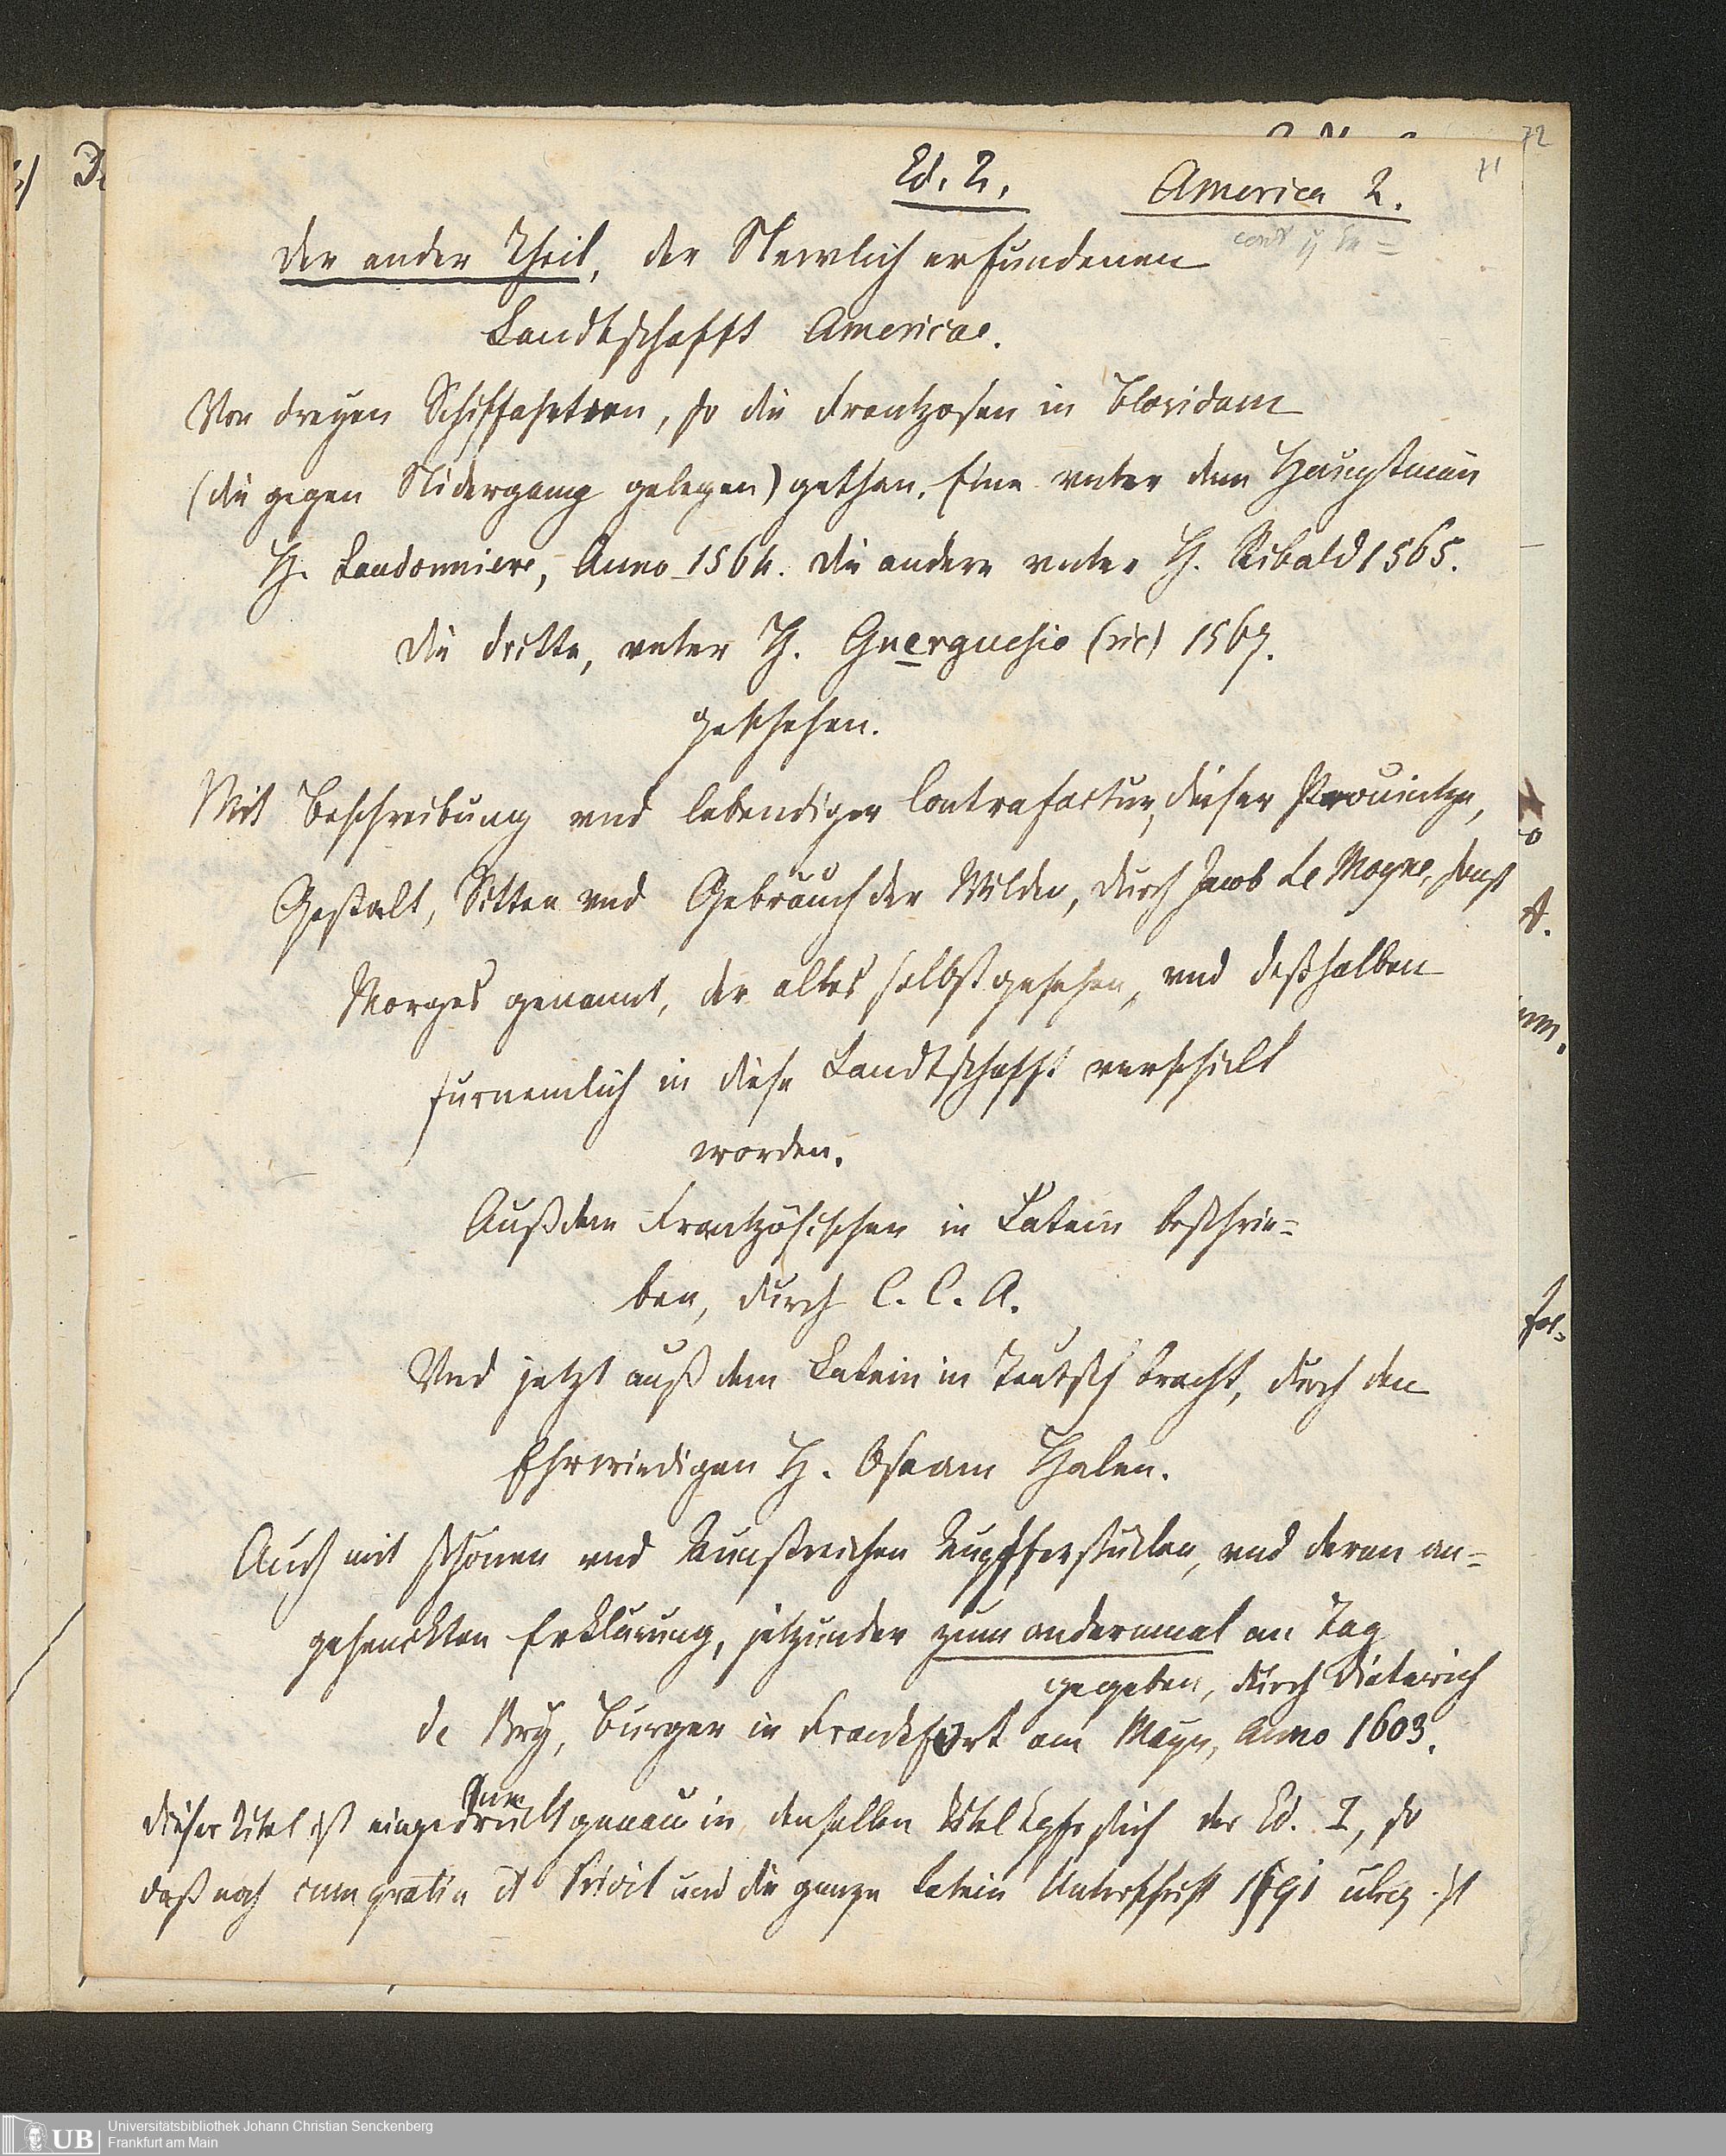 72
71
Ed. 2.
America 2.
Der ander Theil, der Newlich erfundenen
Landtschafft Americae.
Von dreyen Schiffahrten, so die Frantzosen in Floridam
(die gegen Nidergang gelegen) gethan. Eine vnter dem Hauptmañ
H. Laudonniere, Anno 1564. Die andere vnter H. Ribald 1565.
Die dritte, vnter H. Guerguesio (sic) 1567.
geschehen.
Mit Beschreibung vnd lebendiger Contrafactur, dieser Prouintze,
Gestalt, Sitten vnd Gebräuch der Wilden, durch Jacob Le Moyne, sonst
Morges genannt, der alles selbst gesehen, vnd deßhalben
furnemlich in diese Landtschafft verschickt
worden.
Auß dem Frantzösischen in Latein beschrie-
ben, durch C. C. A.
Vnd jetzt auß dem Latein in Teutsch bracht, durch den
Ehrwirdigen H. Oseam Halen.
Auch mit schönen vnd kunstreichen Kupfferstücken, vnd deren an-
gehenckten Erklärung, jetzunder zum andernmal an Tag
gegeben, durch Dieterich
de Bry, Burger in Franckfort am Mayn, Anno 1603.
Dieser Titel ist eingedruckt genau in denselben Titelkpfrstich der Ed. I, so
daß noch cum gratia et Privil und die ganze Latein Unterschrift 1591 übrig ist
Universitätsbibliothek Johann Christian Senckenberg
Frankfurt am Main
UB